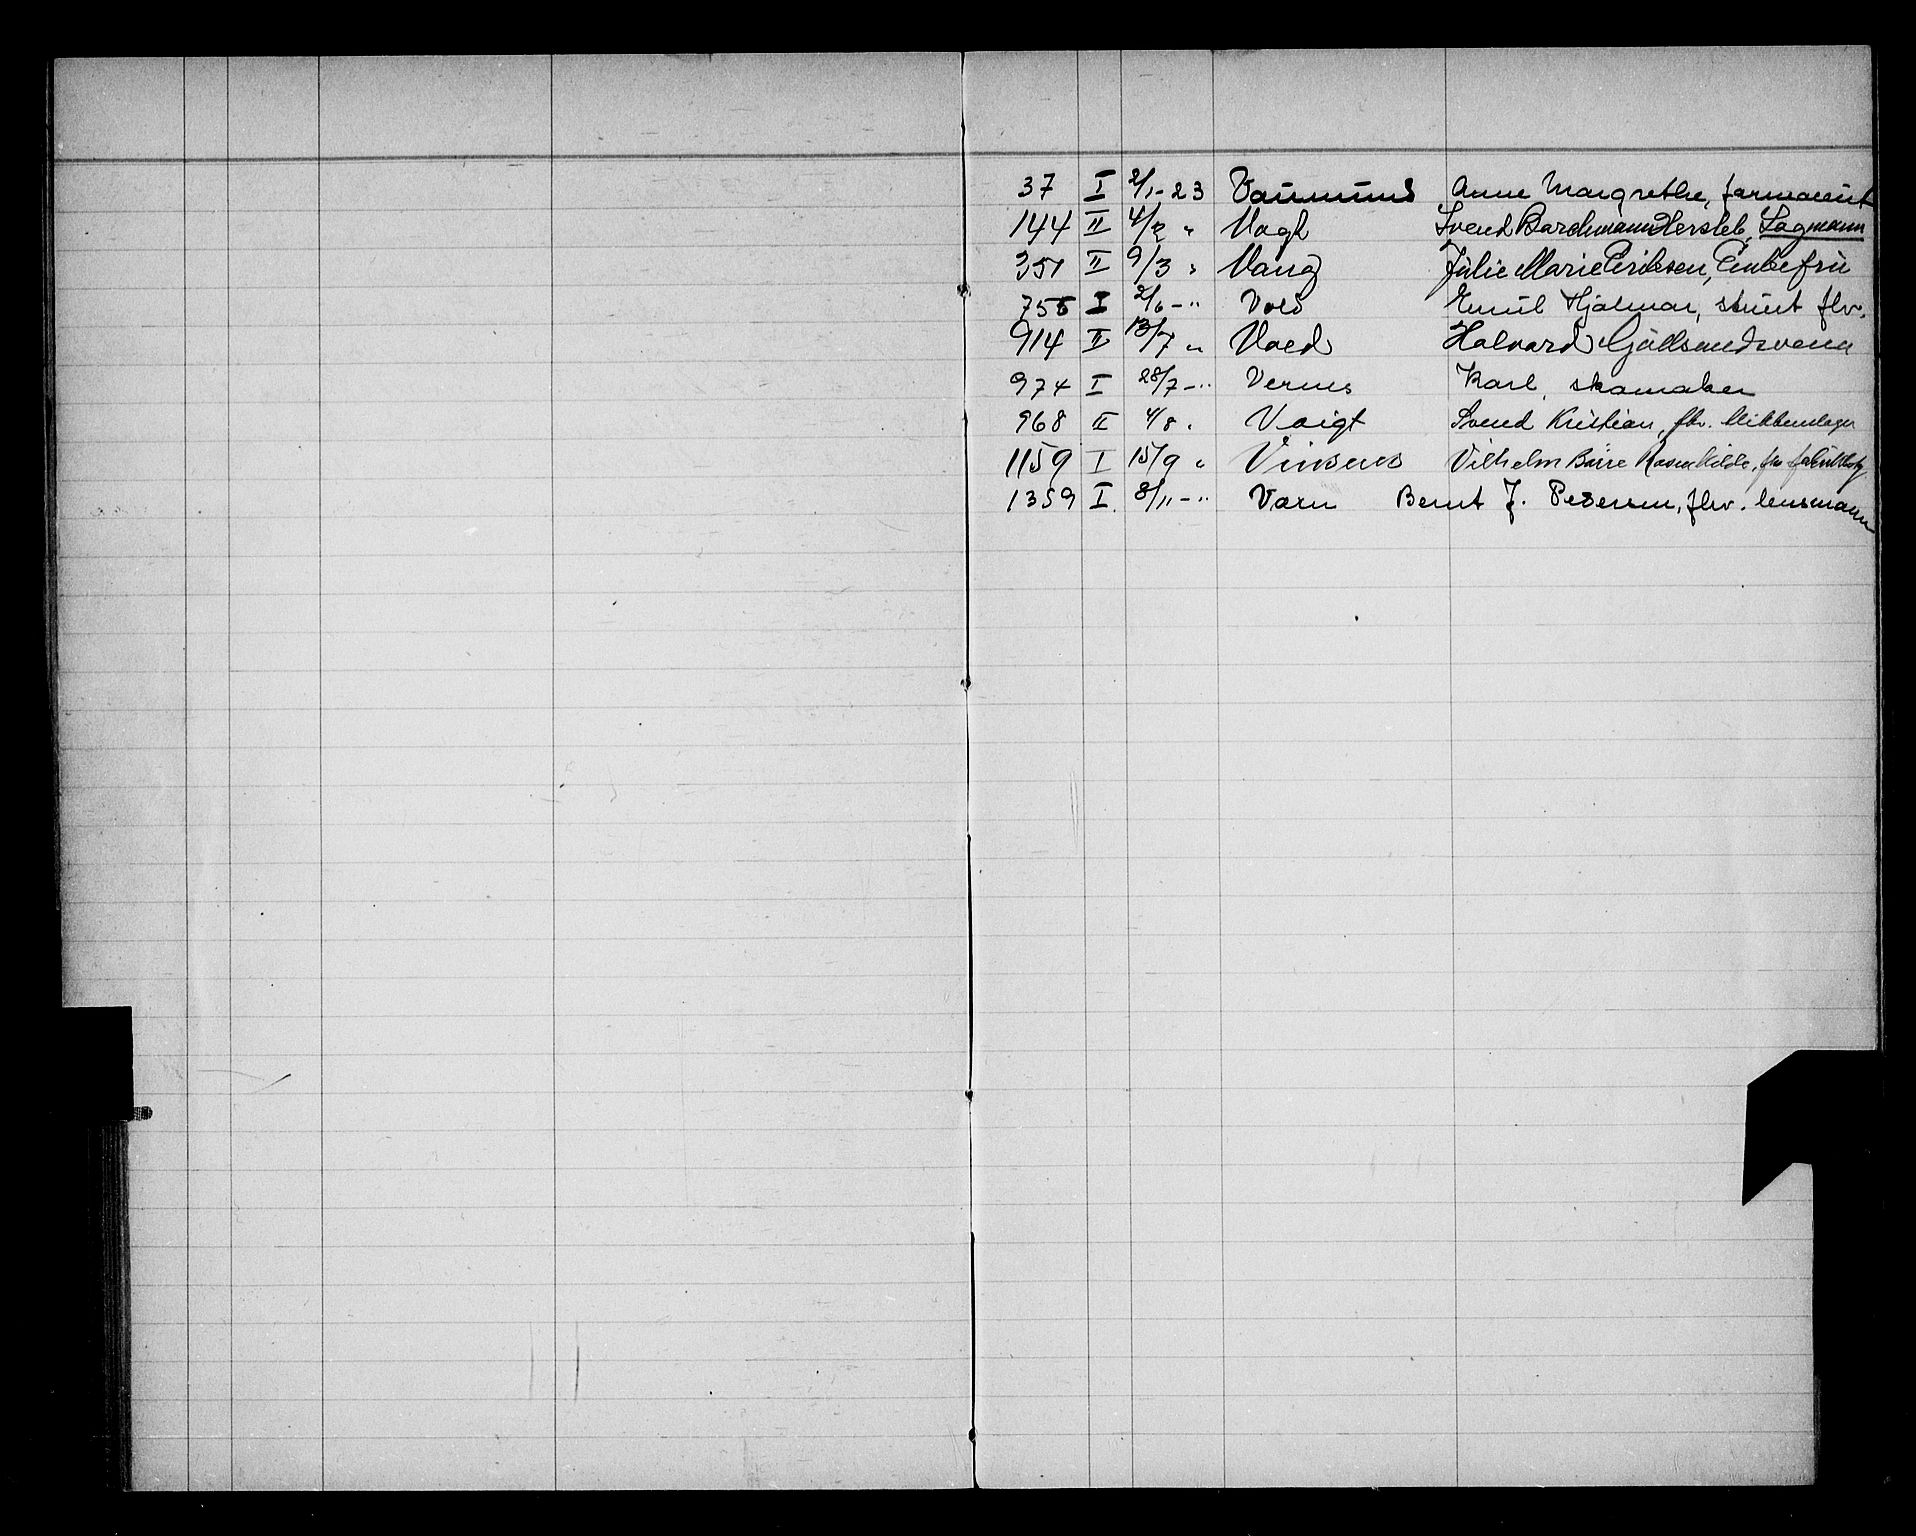 37 I 2/1-23 Vaumund Anne Margrethe,
144 II 4/2 " Vogt Svend Barchmann Hersleb, Lagmann
351 II 9/3 " Vang Julie Marie Eriksen, Enkefru
755 I 2/6-" Vold Emil Hjalmar, flv.
914 II 13/7 " Voed Halvard
974 I 28/7-" Vernes Karl, skomaker
968 II 4/8 " Voigt Svend Kristian, fhv.
1159 I 15/9 " Vinsnes Vilhelm Rosenkilde,
1359 I 8/11-" Værn Bernt J. Pedersen, flv. lensmann